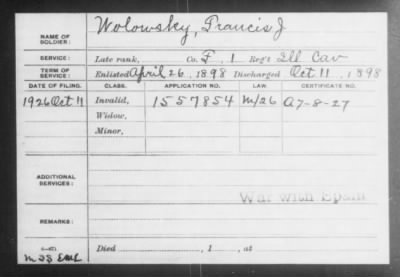 NAME OF SOLDIER: Wolowsky, Francis J
SERVICE: Late rank, Co. F, 1 Reg't Ill Cav
TERM OF SERVICE: Enlisted April 26, 1898 Discharged Oct 11, 1898
DATE OF FILING. CLASS. APPLICATION NO. LAW. CERTIFICATE NO.
1926 Oct 11 Invalid, 1557854 M/26 A7-8-27
Widow,
Minor,
ADDITIONAL SERVICES:
War with Spain
REMARKS:
Died , 1 , at